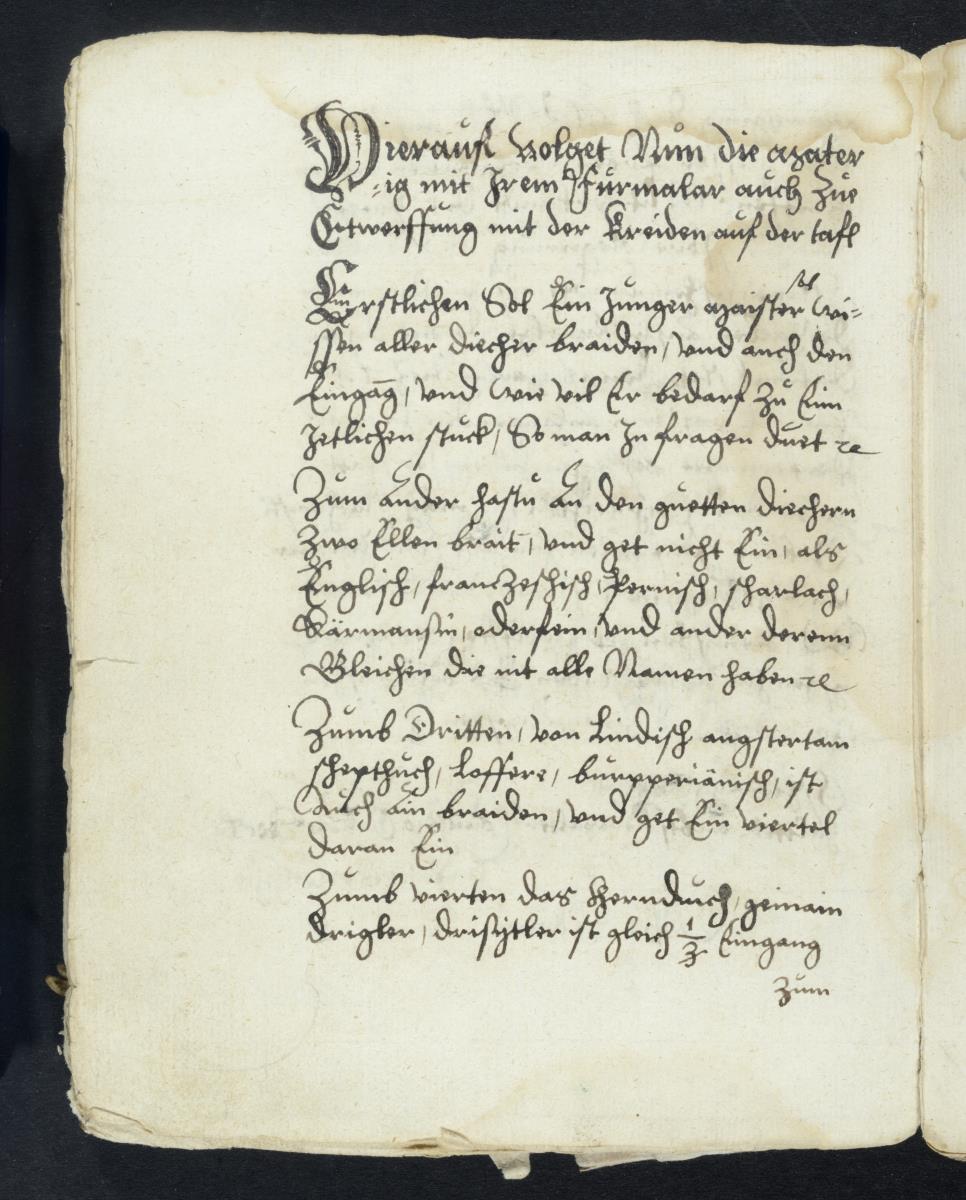 Hierauf volget Nun die Mater
=ig mit Irem Furmalar auch zue
Entwerffung mit der Kreiden auf der tafl
Erstlichen Sol Ein Junger Maister wi=
ssen aller diecher braiden, und auch den
Eingang, und wie vil Er bedarf zu Eim
Jetlichen stuck, So man In fragen duet ꝛc
Zum Ander hastu An den guetten diechern
zwo Ellen brait, und get nicht Ein, als
Englisch, franczeschisch, Pernisch, scharlach,
Kärmansin, oderfein, und ander derenn
Gleichen die nit alle Namen haben ꝛc
Zumb Dritten, von Lindisch angstertam
schepthuch, loffere, burpperiänisch, ist
Auch Ain braiden, und get Ein viertel
daran Ein
Zumb vierten das Hernduch, gemain
drigler, drisytler ist gleich 1/3 Eingang
zum